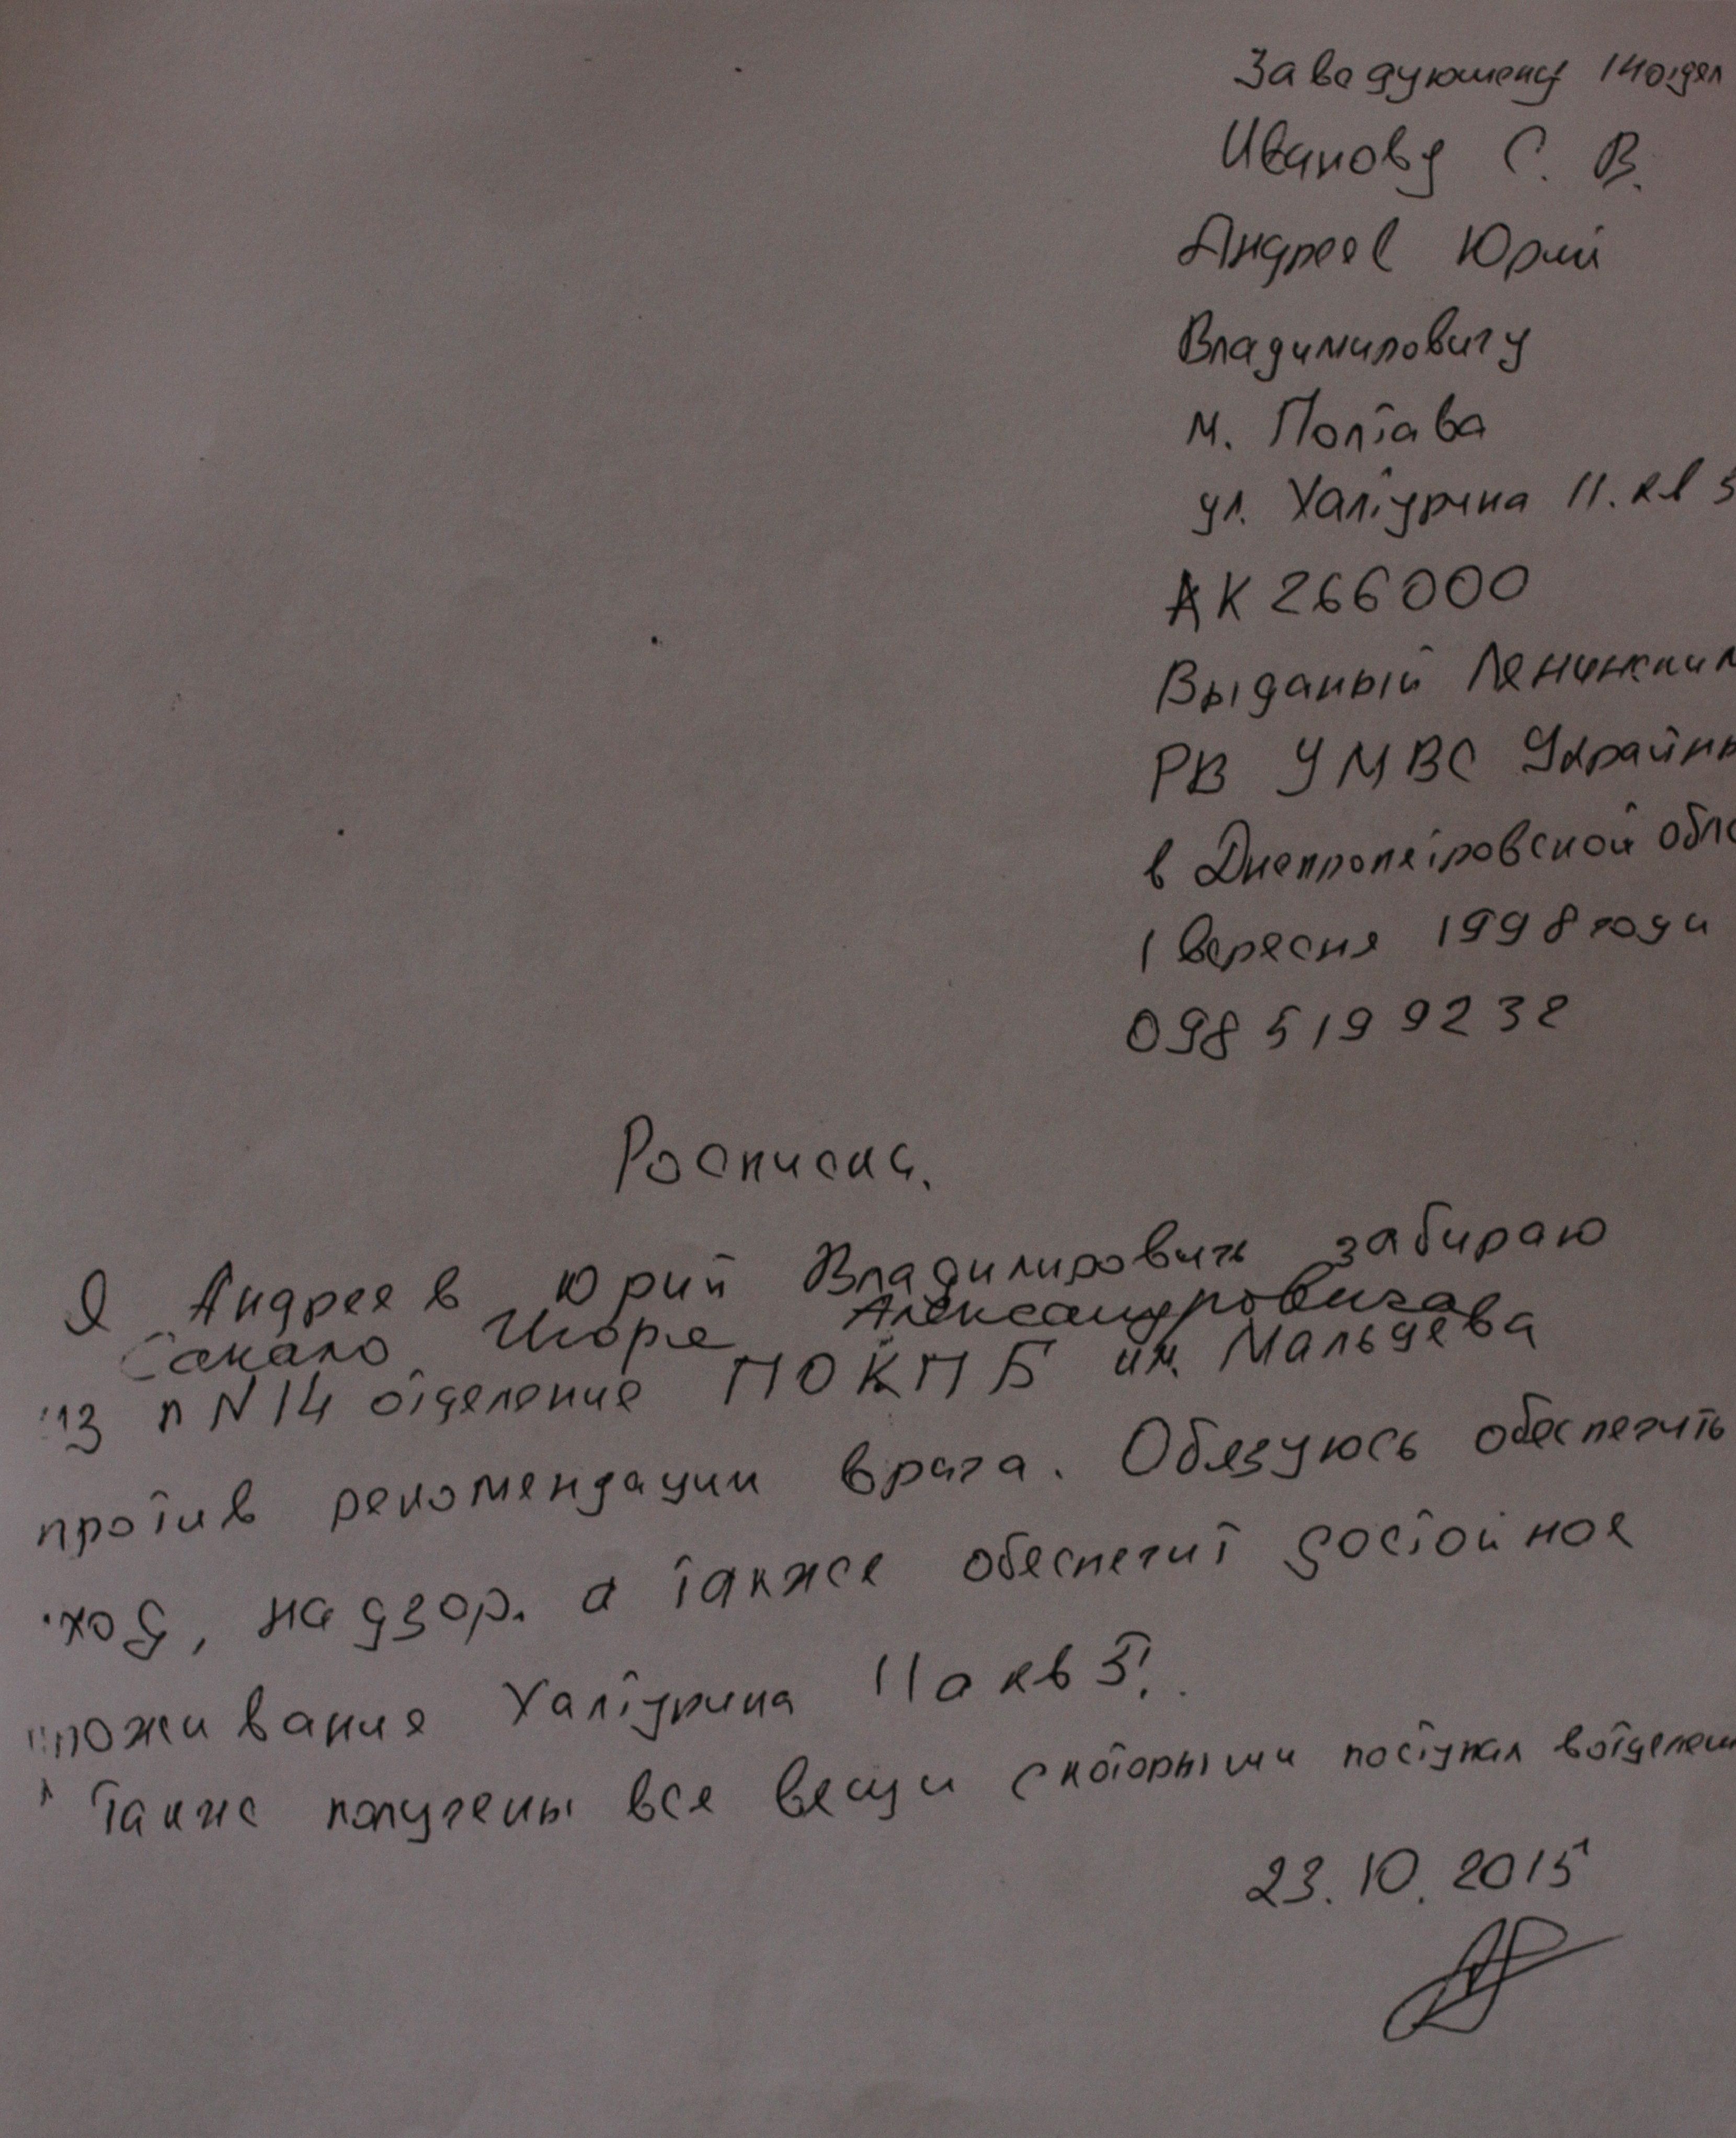 Заведующему 14 отдел
Иванову С. В.
Андреев Юрий
Владимировичу
м. Полтава
ул. Халтурина 11. кв 5
АК 266000
Выданый Ленинским
РВ УМВС Украйны
в Днепропетровской обла
1 вересня 1998 годи
098 519 9232
Росписка.
Я Андреев Юрий Владимирович забираю
Сокало Игоря Александровича
из п N14 отделение ПОКПБ им. Мальцева
против рекомендации врача. Обязуюсь обеспечить
уход, надзор. а также обеспечит достойное
проживание Халтурина 11а кв 5!.
Также получены все вещи с которыми поступал в отделени
23.10.2015